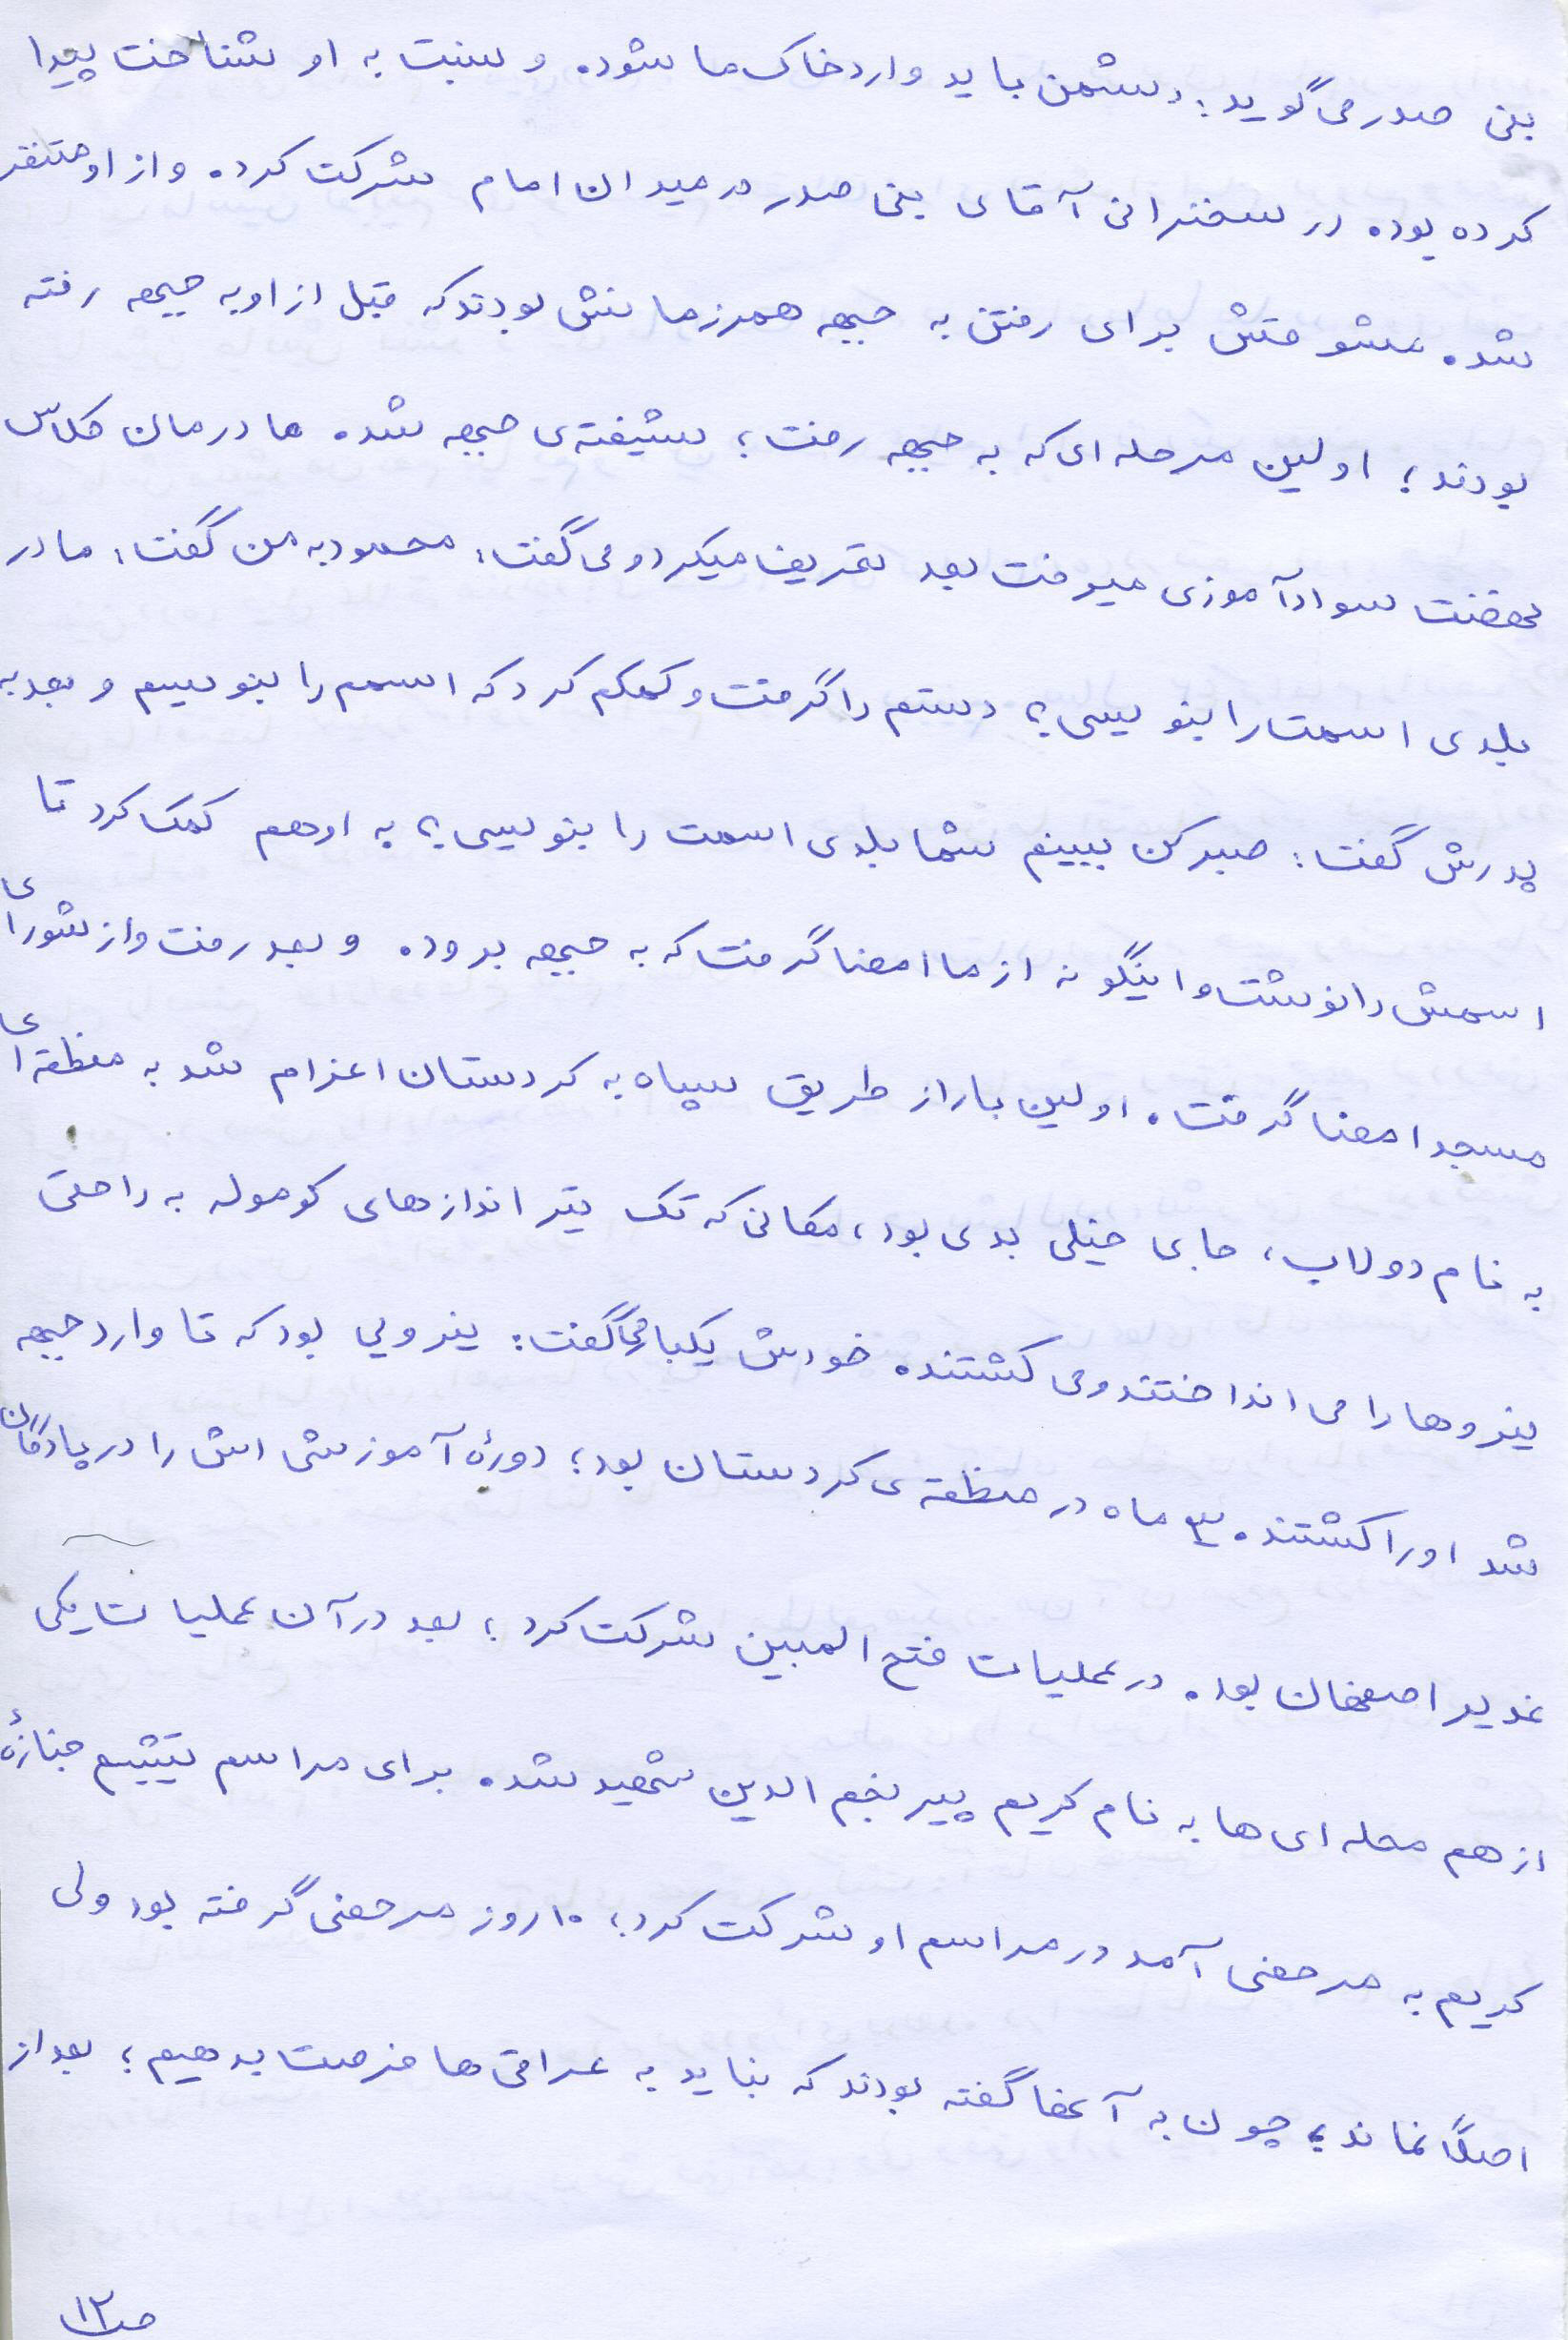 بنی صدر می گوید: دشمن باید وارد خاک ما شود. و نسبت به او شناخت پیدا
کرده بود. در سخنرانی آقای بنی صدر در میدان امام شرکت کرد. و از او متنفر
شد. مشوقش برای رفتن به جبهه همرزمانش بودند که قبل از او به جبهه رفته
بودند؛ اولین مرحله ای که به جبهه رفت؛ شیفته ی جبهه شد. مادرمان کلاس
نهضت سوادآموزی میرفت بعد تعریف میکرد و می گفت: محمود به من گفت: مادر
بلدی اسمت را بنویسی؟ دستم را گرفت و کمکم کرد که اسمم را بنویسم و بعد به
پدرش گفت: صبر کن ببینم شما بلدی اسمت را بنویسی؟ به او هم کمک کرد تا
اسمش را نوشت و اینگونه از ما امضا گرفت که به جبهه برود. و بعد رفت و از شورای
مسجد امضا گرفت. اولین بار از طریق سپاه به کردستان اعزام شد به منطقه ای
به نام دولاب، جای خیلی بدی بود، مکانی که تک تیراندازهای کوموله به راحتی
نیروها را می انداختند و می کشتند. خودش یکبار می گفت: نیرویی بود که تا وارد جبهه
شد او را کشتند. ۳ ماه در منطقه ی کردستان بود؛ دورۀ آموزشی اش را در پادگان
غدیر اصفهان بود. در عملیات فتح المبین شرکت کرد؛ بعد در آن عملیات یکی
از هم محله ای ها به نام کریم پیر نجم الدین شهید شد. برای مراسم تشییع جنازۀ
کریم به مرخصی آمد در مراسم او شرکت کرد؛ ۱۰ روز مرخصی گرفته بود ولی
اصلاً نماند؛ چون به آنها گفته بودند که نباید به عراقی ها فرصت بدهیم؛ بعد از
ص۱۲